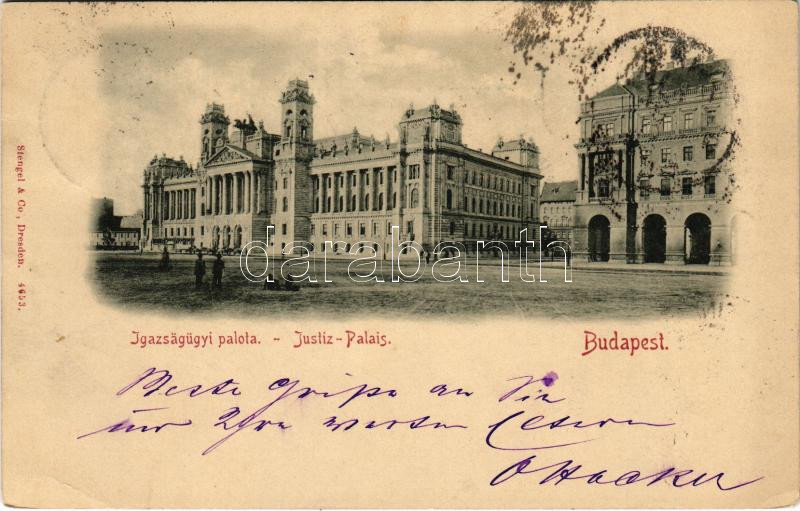 Stengel & Co, Dresden. 4653.
darabanth
Igazságügyi palota. - Justiz-Palais.
Budapest.
Beste Grüße an Sie
und Ihre werten